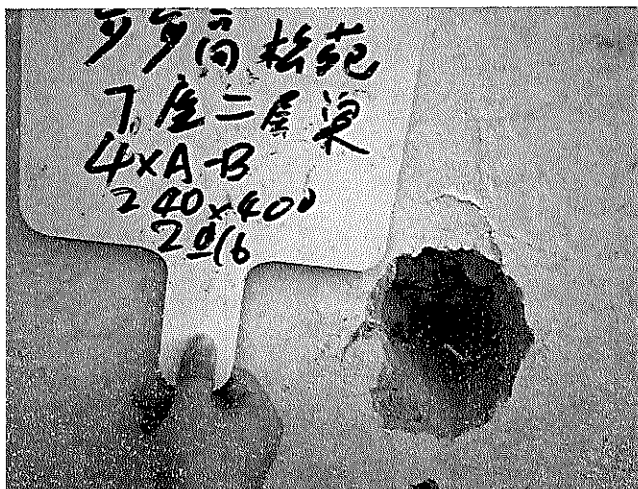 多多高松苑
7座二层梁
4×A-B
240×400
2⌀16